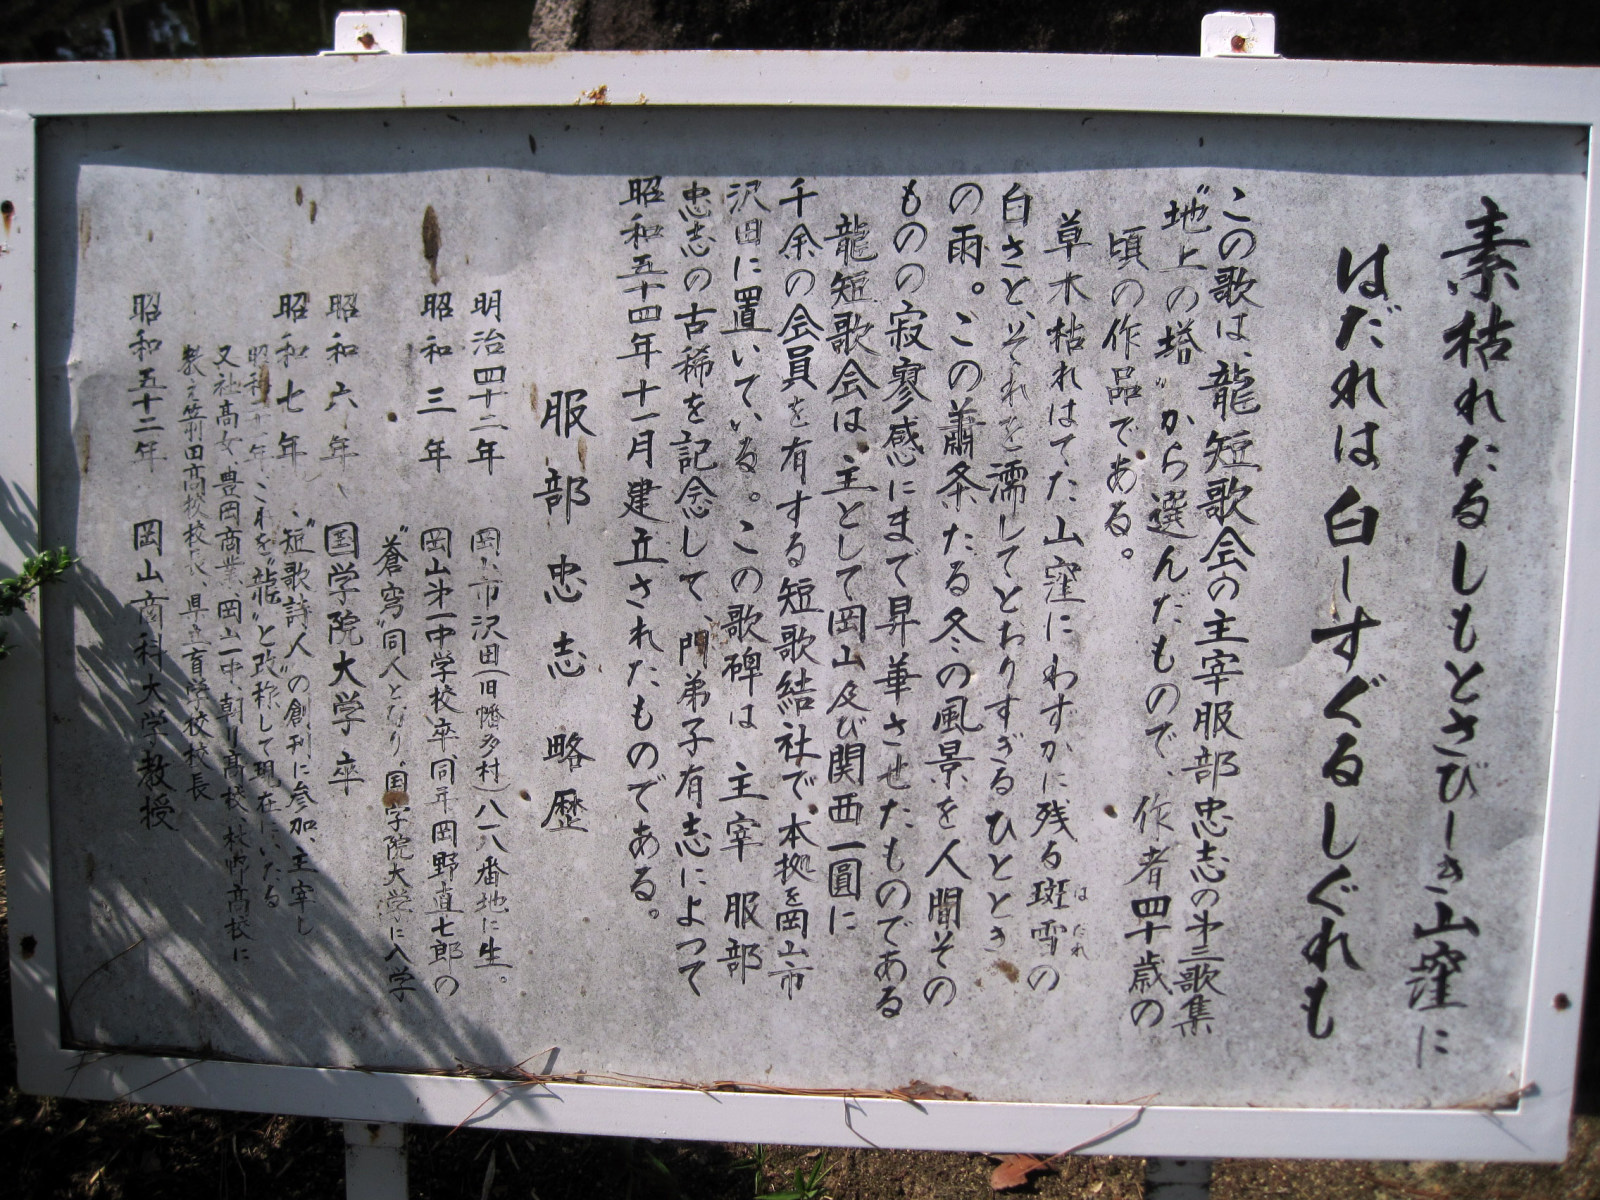 素枯れたるしもとさびしき山窪に
はだれは白しすぐるしぐれも
この歌は、龍短歌会の主宰服部忠志の第三歌集
"地上の塔"から選んだもので、作者四十歳の
頃の作品である。
草木枯れはてた山窪にわずかに残る斑雪の
はだれ
白さと、それを濡してとおりすぎるひととき
の雨。この蕭条たる冬の風景を人間その
ものの寂寥感にまで昇華させたものである
龍短歌会は、主として岡山及び関西一圓に
千余の会員を有する短歌結社で、本拠を岡山市
沢田に置いている。この歌碑は 主宰 服部
忠志の古稀を記念して、門弟子有志によって
昭和五十四年十一月建立されたものである。
服部忠志略歴
明治四十二年 岡山市沢田(旧幡多村)八一八番地に生。
昭和三年 岡山第一中学校卒、同年岡野直七郎の
"蒼穹"同人となり、国学院大学に入学
昭和六年 国学院大学卒
昭和七年 "短歌詩人"の創刊に参加、主宰し
これを"龍"と改称して現在にいたる
又社高女、豊岡商業、岡山一中、朝日高校、高校に
教え笠田高校校長、県立盲学校校長
昭和五十二年 岡山商科大学教授